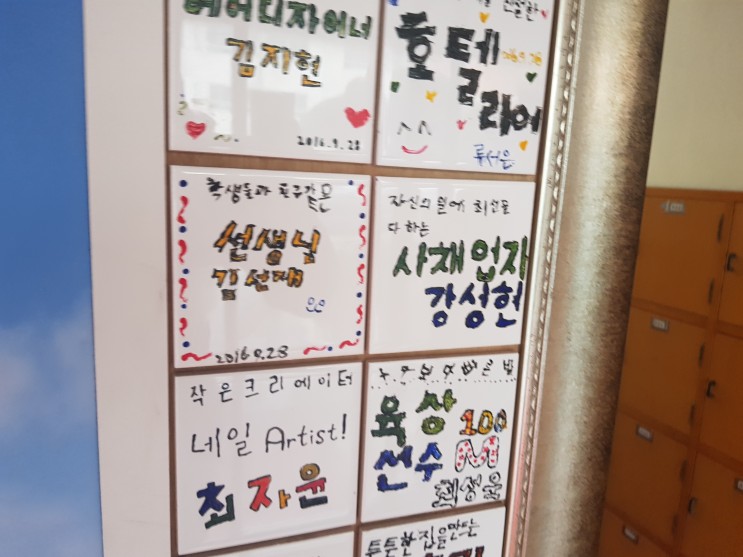 헤어디자이너
김지현
2016.9.28
친절한
호텔
리어
류서은
학생들과 친구같은
선생님
김선태
2016.9.28
자신의 일에 최선을
다 하는
사채업자
강성현
작은 크리에이터
네일 Artist!
최자윤
빠른 발
육상 100
선수 M
최성욱
튼튼한 집을 만드는